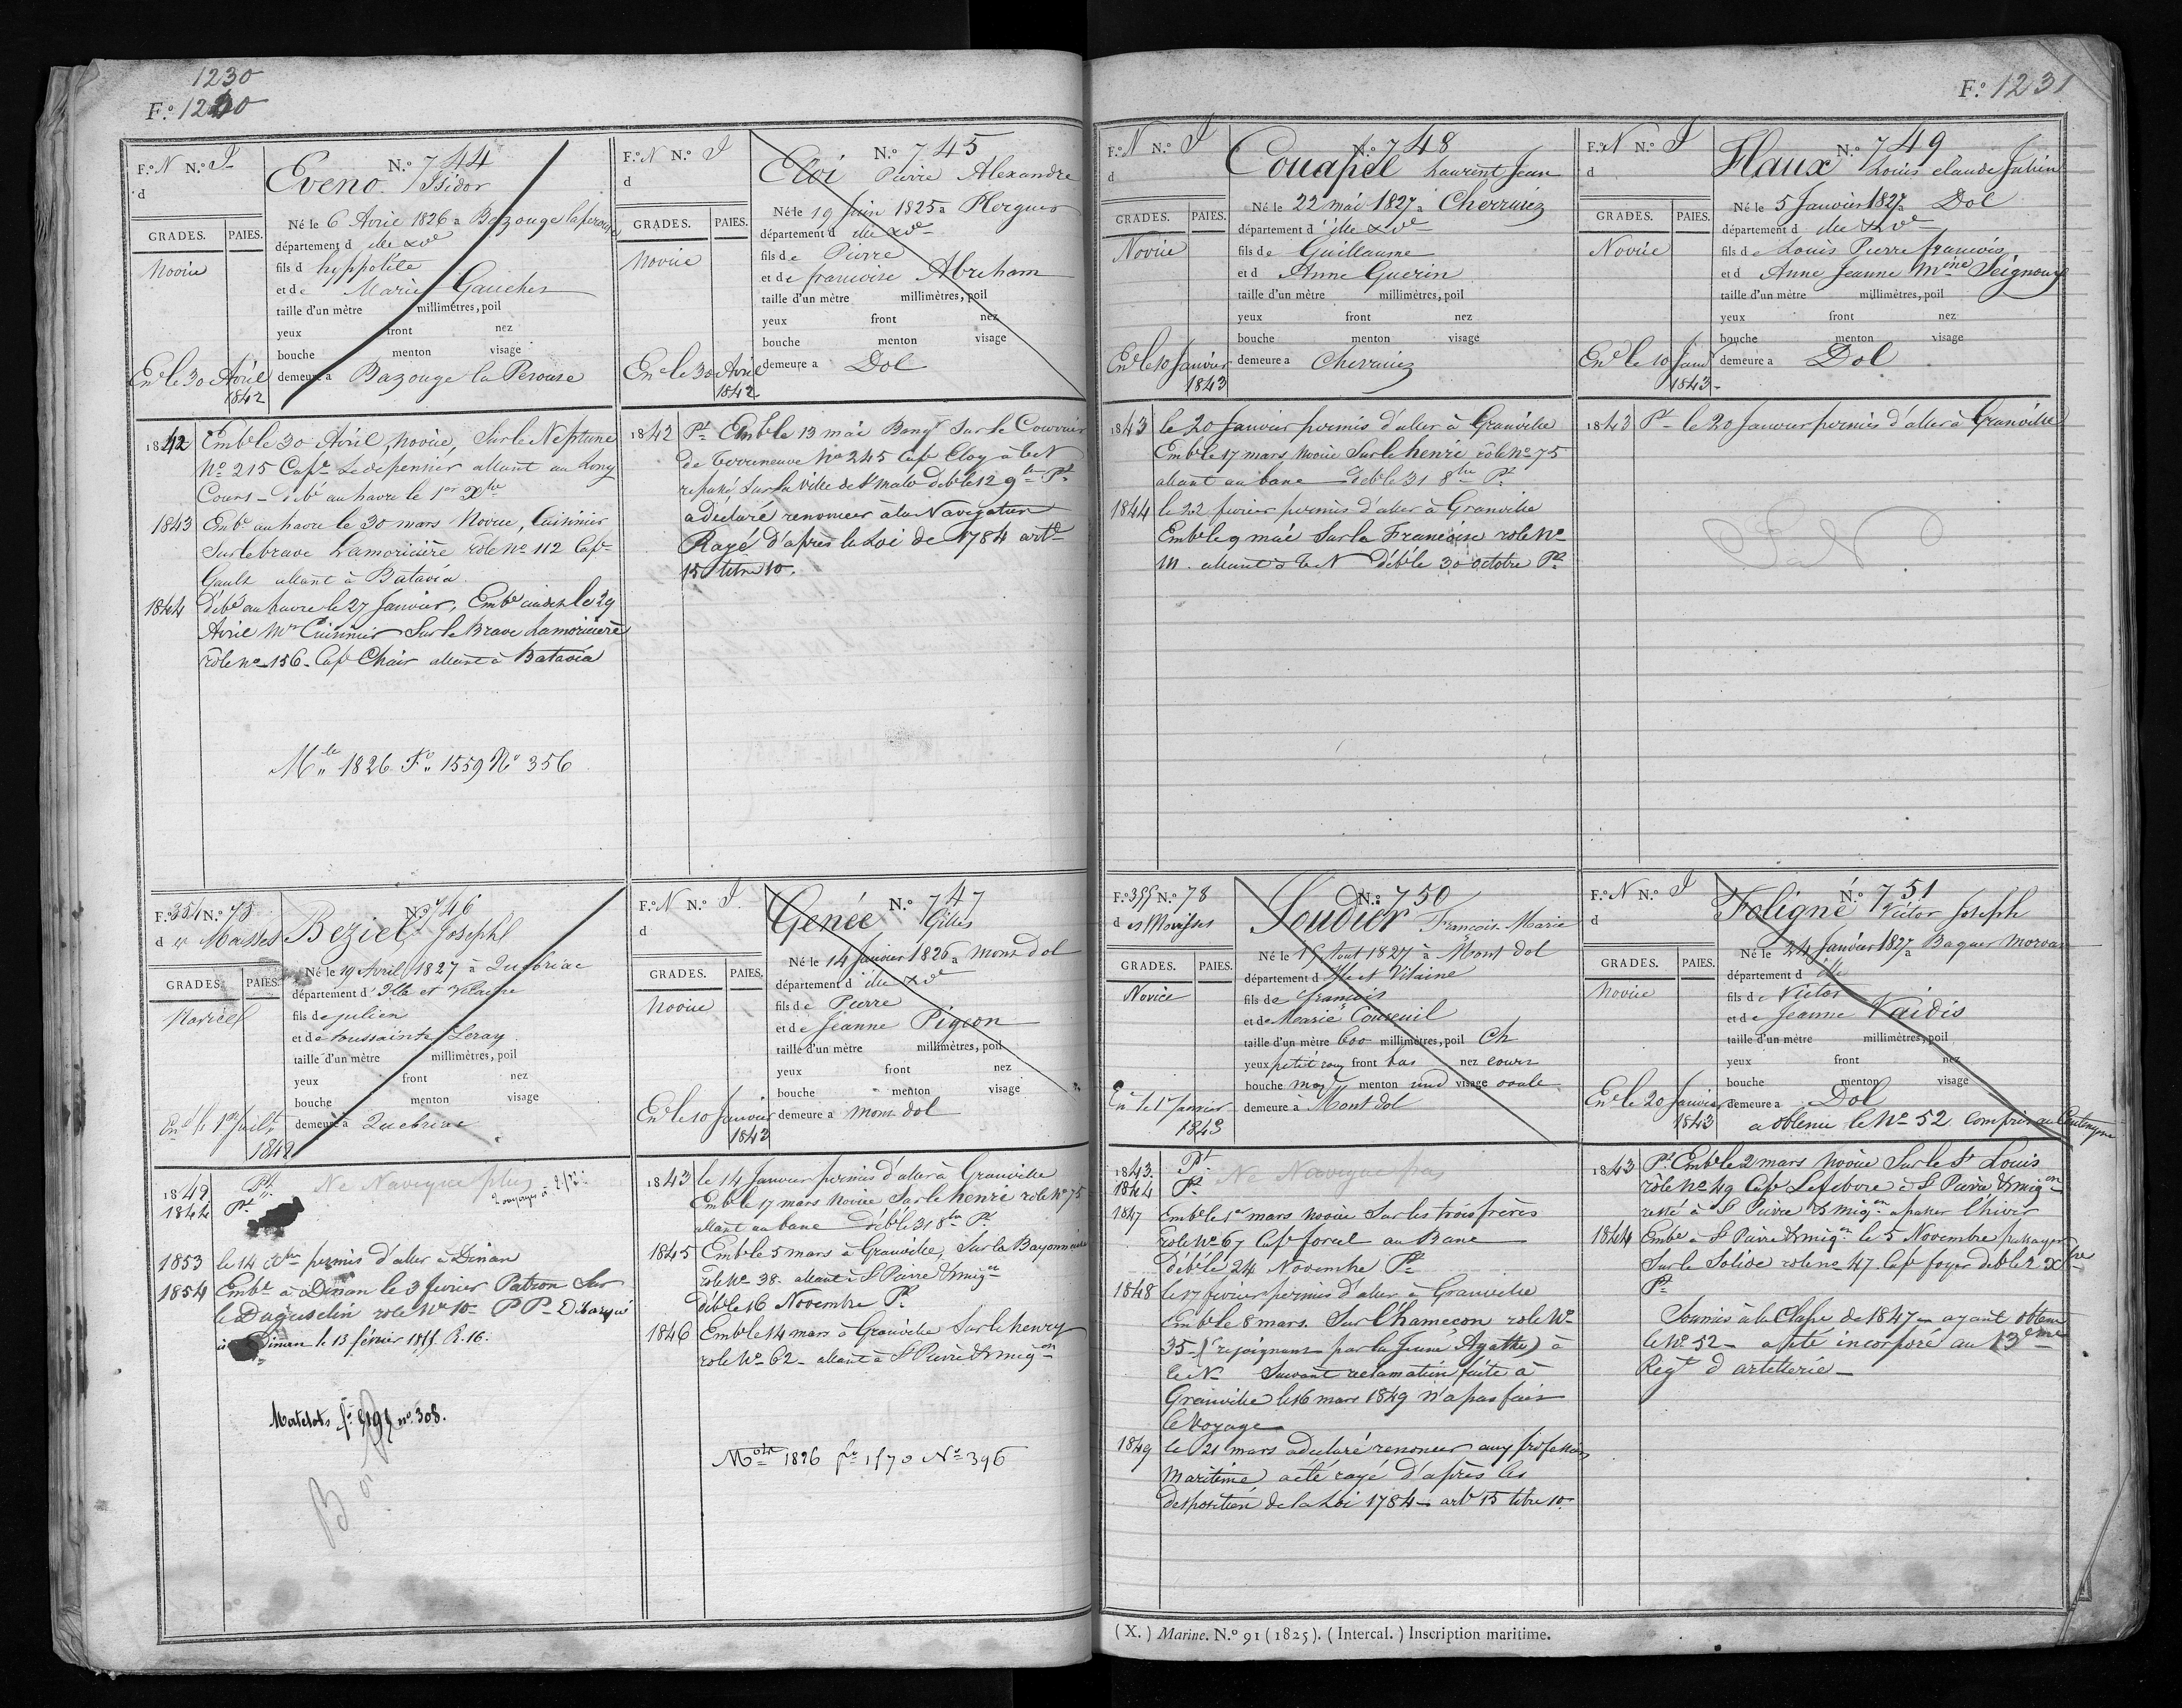 1230
F.º 1220
F.º N N.º I
d
N.º 744
Eveno Isidor
GRADES. PAIES.
Né le 6 Avril 1826 a Bazouge laperouse
département d ille & Ve
novice
fils d hyppolite
et de Marie Gaucher
taille d'un mètre millimètres, poil
yeux front nez
bouche menton visage
Enr le 30 Avril
1842
demeure a Bazouge la Perouse
1842 Embé le 30 Avril, novice, Sur le Neptune
Nº 215 Cape Ledepensier allant au Long
Cours - débé au havre le 1er Xbre
1843 Embé au havre le 30 mars Novice, Cuisinier
Sur le brave Lamoricière rôle nº 112 Cape
Gault allant à Batavia
1844 débé au havre le 27 Janvier, Embé audit le 29
Avril Mtre Cuisinier Sur le Brave Lamoriciere
rôle nº 156 - Cape Chair allant à Batavia
Mle 1826 Fº 1559 Nº 356
F.º N N.º I
d
N.º 745
Eloi Pierre Alexandre
GRADES. PAIES.
Né le 19 juin 1825 a Plerguer
département d ille & Ve
novice
fils de Pierre
et de francoise Abreham
taille d'un mètre millimètres, poil
yeux front nez
bouche menton visage
Enr le 30 Avril
1842
demeure a Dol
1842 Pt Embé le 13 mai Sur le Courrier
de terreneuve Nº 245 Cap Eloy à T.N
repassé Sur la Ville de St Malo débé le 12 9bre Pt
a déclaré renoncer à la Navigation
Rayé d'après la Loi de 1784 artle
15 titre 10.
F.º 354 N.º 75
d es Mousses
N.º 746
Beziel Joseph
GRADES. PAIES.
Né le 19 Avril 1827 à Quebriac
département d' Ille et Vilaine
Novice
fils de julien
et de toussainte Leray
taille d'un mètre millimètres, poil
yeux front nez
bouche menton visage
Enr le 1er juillet
1842
demeure à Quebriac
1842 Pt Ne Navigue plus
1844 Pt
1853 le 14 Xbre permis d'aller à Dinan
1854 Embé à Dinan le 3 fevrier Patron Sur
le Duguesclin role Nº 10 - PP - Débarqué
à Dinan le 13 février 1855 R. 16.
Matelots nº 308.
F.º N N.º I
d
N.º 747
Genée Gilles
GRADES. PAIES.
Né le 14 Janvier 1826 a mont dol
département d ille & Ve
novice
fils de Pierre
et de Jeanne Pigeon
taille d'un mètre millimètres, poil
yeux front nez
bouche menton visage
Enr le 10 Janvier
1843
demeure a mont dol
1843 le 14 Janvier permis d'aller à Granville
Embé le 17 mars novice Sur le henri role Nº 75
allant au banc débé le 31 8bre Pt
1845 Embé le 5 mars à Granville, Sur la Bayonnaise
rôle Nº 38 - allant à St Pierre & miqon
débé le 16 Novembre Pt
1846 Embé le 14 mars à Granville Sur le henry
role Nº 62 - allant à St Pierre & miqon
Mots 1826 fº 1570 Nº 396
F.º 1231
F.º N N.º I
d
N.º 748
Couapel Laurent Jean
GRADES. PAIES.
Né le 22 mai 1827 a Cherrueix
département d' ille & Ve
Novice
fils de Guillaume
et d Anne Guerin
taille d'un mètre millimètres, poil
yeux front nez
bouche menton visage
Enr le 10 Janvier
1843
demeure a Cherrueix
1843 le 20 Janvier permis d'aller à Granville
Embé le 17 mars novice Sur le henri rôle nº 75
allant au banc débé le 31 8bre Pt
1844 le 22 fevrier permis d'aller à Granville
Embé le 9 mai Sur la Francoise role Nº
111 - allant à T.N débé le 30 octobre Pt
F.º N N.º I
d
N.º 749
Flaux Louis claude Julien
GRADES. PAIES.
Né le 5 Janvier 1827 a Dol
département d ille & Ve
Novice
fils de Louis Pierre francois
et d Anne Jeanne Seignoux
taille d'un mètre millimètres, poil
yeux front nez
bouche menton visage
Enr le 10 Janv
1843 -
demeure a Dol
1843 Pt - le 20 Janvier permis d'aller à Granville
F.º 355 N.º 78
d es Mousses
N.º 750
Soudier François-Marie
GRADES. PAIES.
Né le 15 Aout 1827 à Mont dol
département d Ille et Vilaine
Novice
fils de François
et de Marie Couseuil
taille d'un mètre 600 millimètres, poil Ch
yeux petit front bas nez court
bouche moy menton rond visage ovale
Enr le 1er Janvier
1843
demeure à Mont dol
1843. Pt. Ne Navigue pas
1844 Pt.
1847 Embé le 1er mars novice Sur les trois frères
role Nº 67 Cape forcel au Banc
Débé le 24 Novembre Pt
1848 le 17 fevrier permis d'aller à Granville
Embé le 8 mars. Sur l'hamecon role Nº
35 - (rejoignant par la Jeune Agathe) à
T.N - Suivant reclamation faite à
Granville le 16 mars 1849 n'a pas fait
le Voyage
1849 le 21 mars a declaré renoncer aux professions
maritime a été rayé d'après les
desposition de la Loi 1784 - artle 15 titre 10.
F.º N N.º I
d
N.º 751
Foligné Victor Joseph
GRADES. PAIES.
Né le 24 Janvier 1827 a Baguer Morvan
département d ille
novice
fils de Victor
et de Jeanne Vaidis
taille d'un mètre millimètres, poil
yeux front nez
bouche menton visage
Enr le 20 Janvier
1843
demeure a Dol
a obtenu le Nº 52 compris au Contingent
1843 Pt Embé le 2 mars novice Sur le St Louis
rôle Nº 49 Cape Lefebvre à St Pierre & miqon
resté à St Pierre & miqon a passer l'hiver
1844 Embé à St Pierre & miqon le 5 Novembre passager
Sur le Solide role nº 47. Cape foyer débé le 2 Xbre
Pt
Soumis à la Classe de 1847 - ayant obtenu
le Nº 52 - a été incorporé au 13eme
Regt d artellerie -
(X.) Marine. N.º 91 (1825). (Intercal.) Inscription maritime.